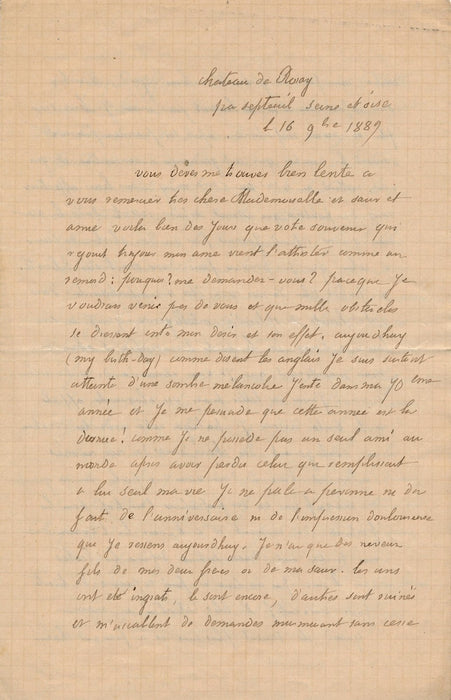 chateau de Rosay
par septeuil seine et oise
le 16 9bre 1889
vous devés me trouver bien lente a
vous remercier tres chere Mademoiselle et sœur et
amie voila bien des jours que votre souvenir qui
rejouit toujour mon ame vient l'attrister comme un
remord: pourquoi? me demander-vous? parceque Je
voudrais venir pres de vous et que mille obstacles
se dressent entre mon desir et son effet. aujourdhuy
(my birth-day) comme disent les anglais Je suis surtout
atteinte d'une sombre mélancolie J'entre dans ma 70 eme
année et Je me persuade que cette année est la
derniere! comme Je ne possede pas un seul ami au
monde apres avoir perdu celui qui remplissait
a lui seul ma vie Je ne parle a personne ni du
fait de l'anniversaire ni de l'impression douloureuse
que Je ressens aujourdhuy. Je n'ai que des neveux
fils de mes deux freres ou de ma sœur. les uns
ont eté ingrats, le sont encore, d'autres sont ruinés
et m'accablent de demandes murmurant sans cesse